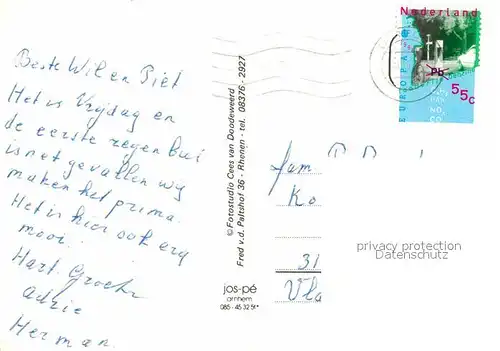 Beste Wil en Piet
Het is Vrijdag en
de eerste regen bui
is net gevallen wij
maken het prima.
Het is hier ook erg
mooi.
Hart. Groetn
Adrie
Herman.
© Fotostudio Cees van Doodeweerd
Fred v.d. Paltshof 36 - Rhenen - tel. 08376 - 2927
jos-pé
arnhem
085 - 45 32 51*
Nederland
EUROPA
Pb
55c
fam
Ko
31
Vla
privacy protection
Datenschutz